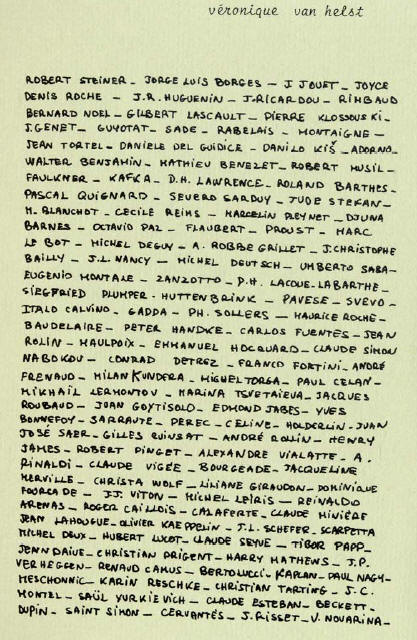 véronique van helst
ROBERT STEINER _ JORGE LUIS BORGES _ J JOUET _ JOYCE
DENIS ROCHE _ J.R. HUGUENIN _ J.RICARDOU _ RIMBAUD
BERNARD NOEL _ GILBERT LASCAULT _ PIERRE KLOSSOWSKI _
J.GENET _ GUYOTAT _ SADE _ RABELAIS _ MONTAIGNE _
JEAN TORTEL _ DANIELE DEL GUIDICE _ DANILO KIŠ _ ADORNO _
WALTER BENJAMIN _ MATHIEU BENEZET _ ROBERT MUSIL _
FAULKNER _ KAFKA _ D.H. LAWRENCE _ ROLAND BARTHES _
PASCAL QUIGNARD _ SEVERO SARDUY _ JUDE STEFAN _
M. BLANCHOT _ CECILE REIMS _ MARCELIN PLEYNET _ DJUNA
BARNES _ OCTAVIO PAZ _ FLAUBERT _ PROUST _ MARC
LE BOT _ MICHEL DEGUY _ A. ROBBE GRILLET _ J.CHRISTOPHE
BAILLY _ J.L. NANCY _ MICHEL DEUTSCH _ UMBERTO SABA _
EUGENIO MONTALE _ ZANZOTTO _ P.H. LACOUE-LABARTHE _
SIEGFRIED PLUMPER-HUTTENBRINK _ PAVESE _ SVEVO _
ITALO CALVINO _ GADDA _ PH. SOLLERS _ MAURICE ROCHE _
BAUDELAIRE _ PETER HANDKE _ CARLOS FUENTES _ JEAN
ROLIN _ MAULPOIX _ EMMANUEL HOCQUARD _ CLAUDE SIMON
NABOKOV _ CONRAD DETREZ _ FRANCO FORTINI _ ANDRÉ
FRENAUD _ MILAN KUNDERA _ MIGUEL TORGA _ PAUL CELAN _
MIKHAIL LERMONTOV _ MARINA TSVETAIEVA _ JACQUES
ROUBAUD _ JUAN GOYTISOLO _ EDMOND JABES _ YVES
BONNEFOY _ SARRAUTE _ PEREC _ CELINE _ HOLDERLIN _ JUAN
JOSÉ SAER _ GILLES QUINSAT _ ANDRÉ ROLLIN _ HENRY
JAMES _ ROBERT PINGET _ ALEXANDRE VIALATTE _ A.
RINALDI _ CLAUDE VIGÉE _ BOURGEADE _ JACQUELINE
MERVILLE _ CHRISTA WOLF _ LILIANE GIRAUDON _ DOMINIQUE
FOURCADE _ J.J. VITON _ MICHEL LEIRIS _ REINALDO
ARENAS _ ROGER CAILLOIS _ CALAFERTE _ CLAUDE MINIÈRE
JEAN LAHOUGUE _ OLIVIER KAEPPELIN _ J.L. SCHEFER _ SCARPETTA
MICHEL DOUX _ HUBERT LUCOT _ CLAUDE SEYVE _ TIBOR PAPP _
JENN DAIVE _ CHRISTIAN PRIGENT _ HARRY MATHEWS _ J.P.
VERHEGGEN _ RENAUD CAMUS _ BERTOLUCCI _ KAPLAN _ PAUL NAGY _
MESCHONNIC _ KARIN RESCHKE _ CHRISTIAN TARTING _ J.C.
MONTEL _ SAÜL YURKIEVICH _ CLAUDE ESTEBAN _ BECKETT _
DUPIN _ SAINT SIMON _ CERVANTÈS _ J.RISSET _ V. NOVARINA _